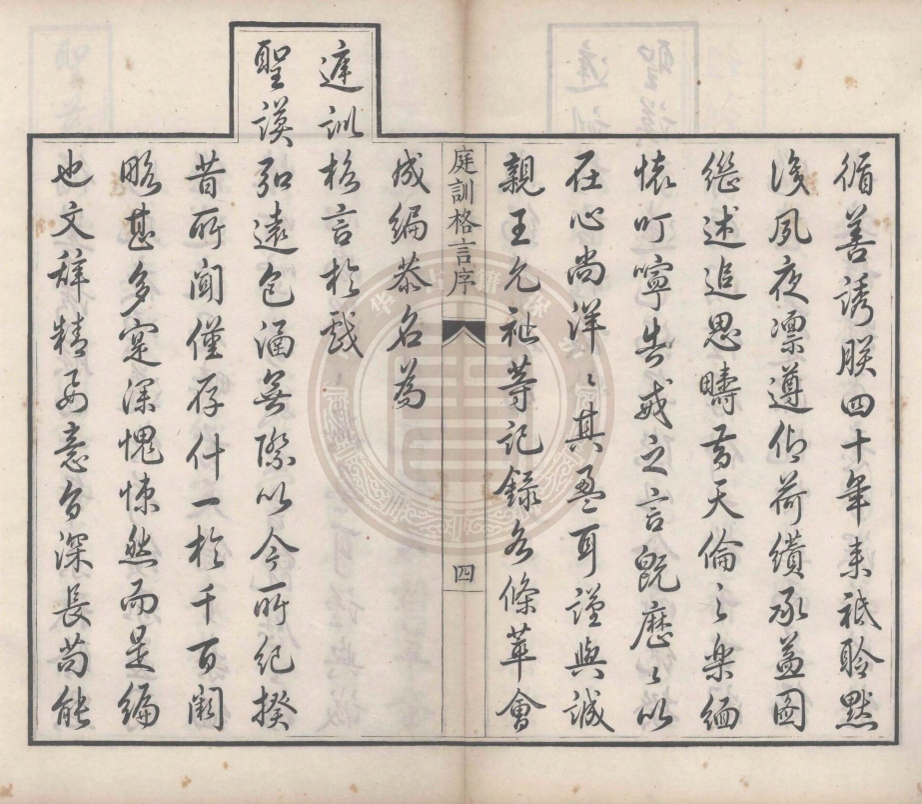 循善誘朕四十年來祗聆默
識夙夜凛遵仰荷纘承益圖
繼述追思疇昔天倫之樂緬
懷叮嚀告戒之言旣歷歷以
在心尚洋洋其盈耳謹與誠
親王允祉等記錄各條萃會
庭訓格言序
四
成編恭名為
庭訓格言於戲
聖謨弘遠包涵無際以今所紀揆
昔所聞僅存什一於千百闕
略甚多寔深愧悚然而是編
也文辭精要意旨深長苟能